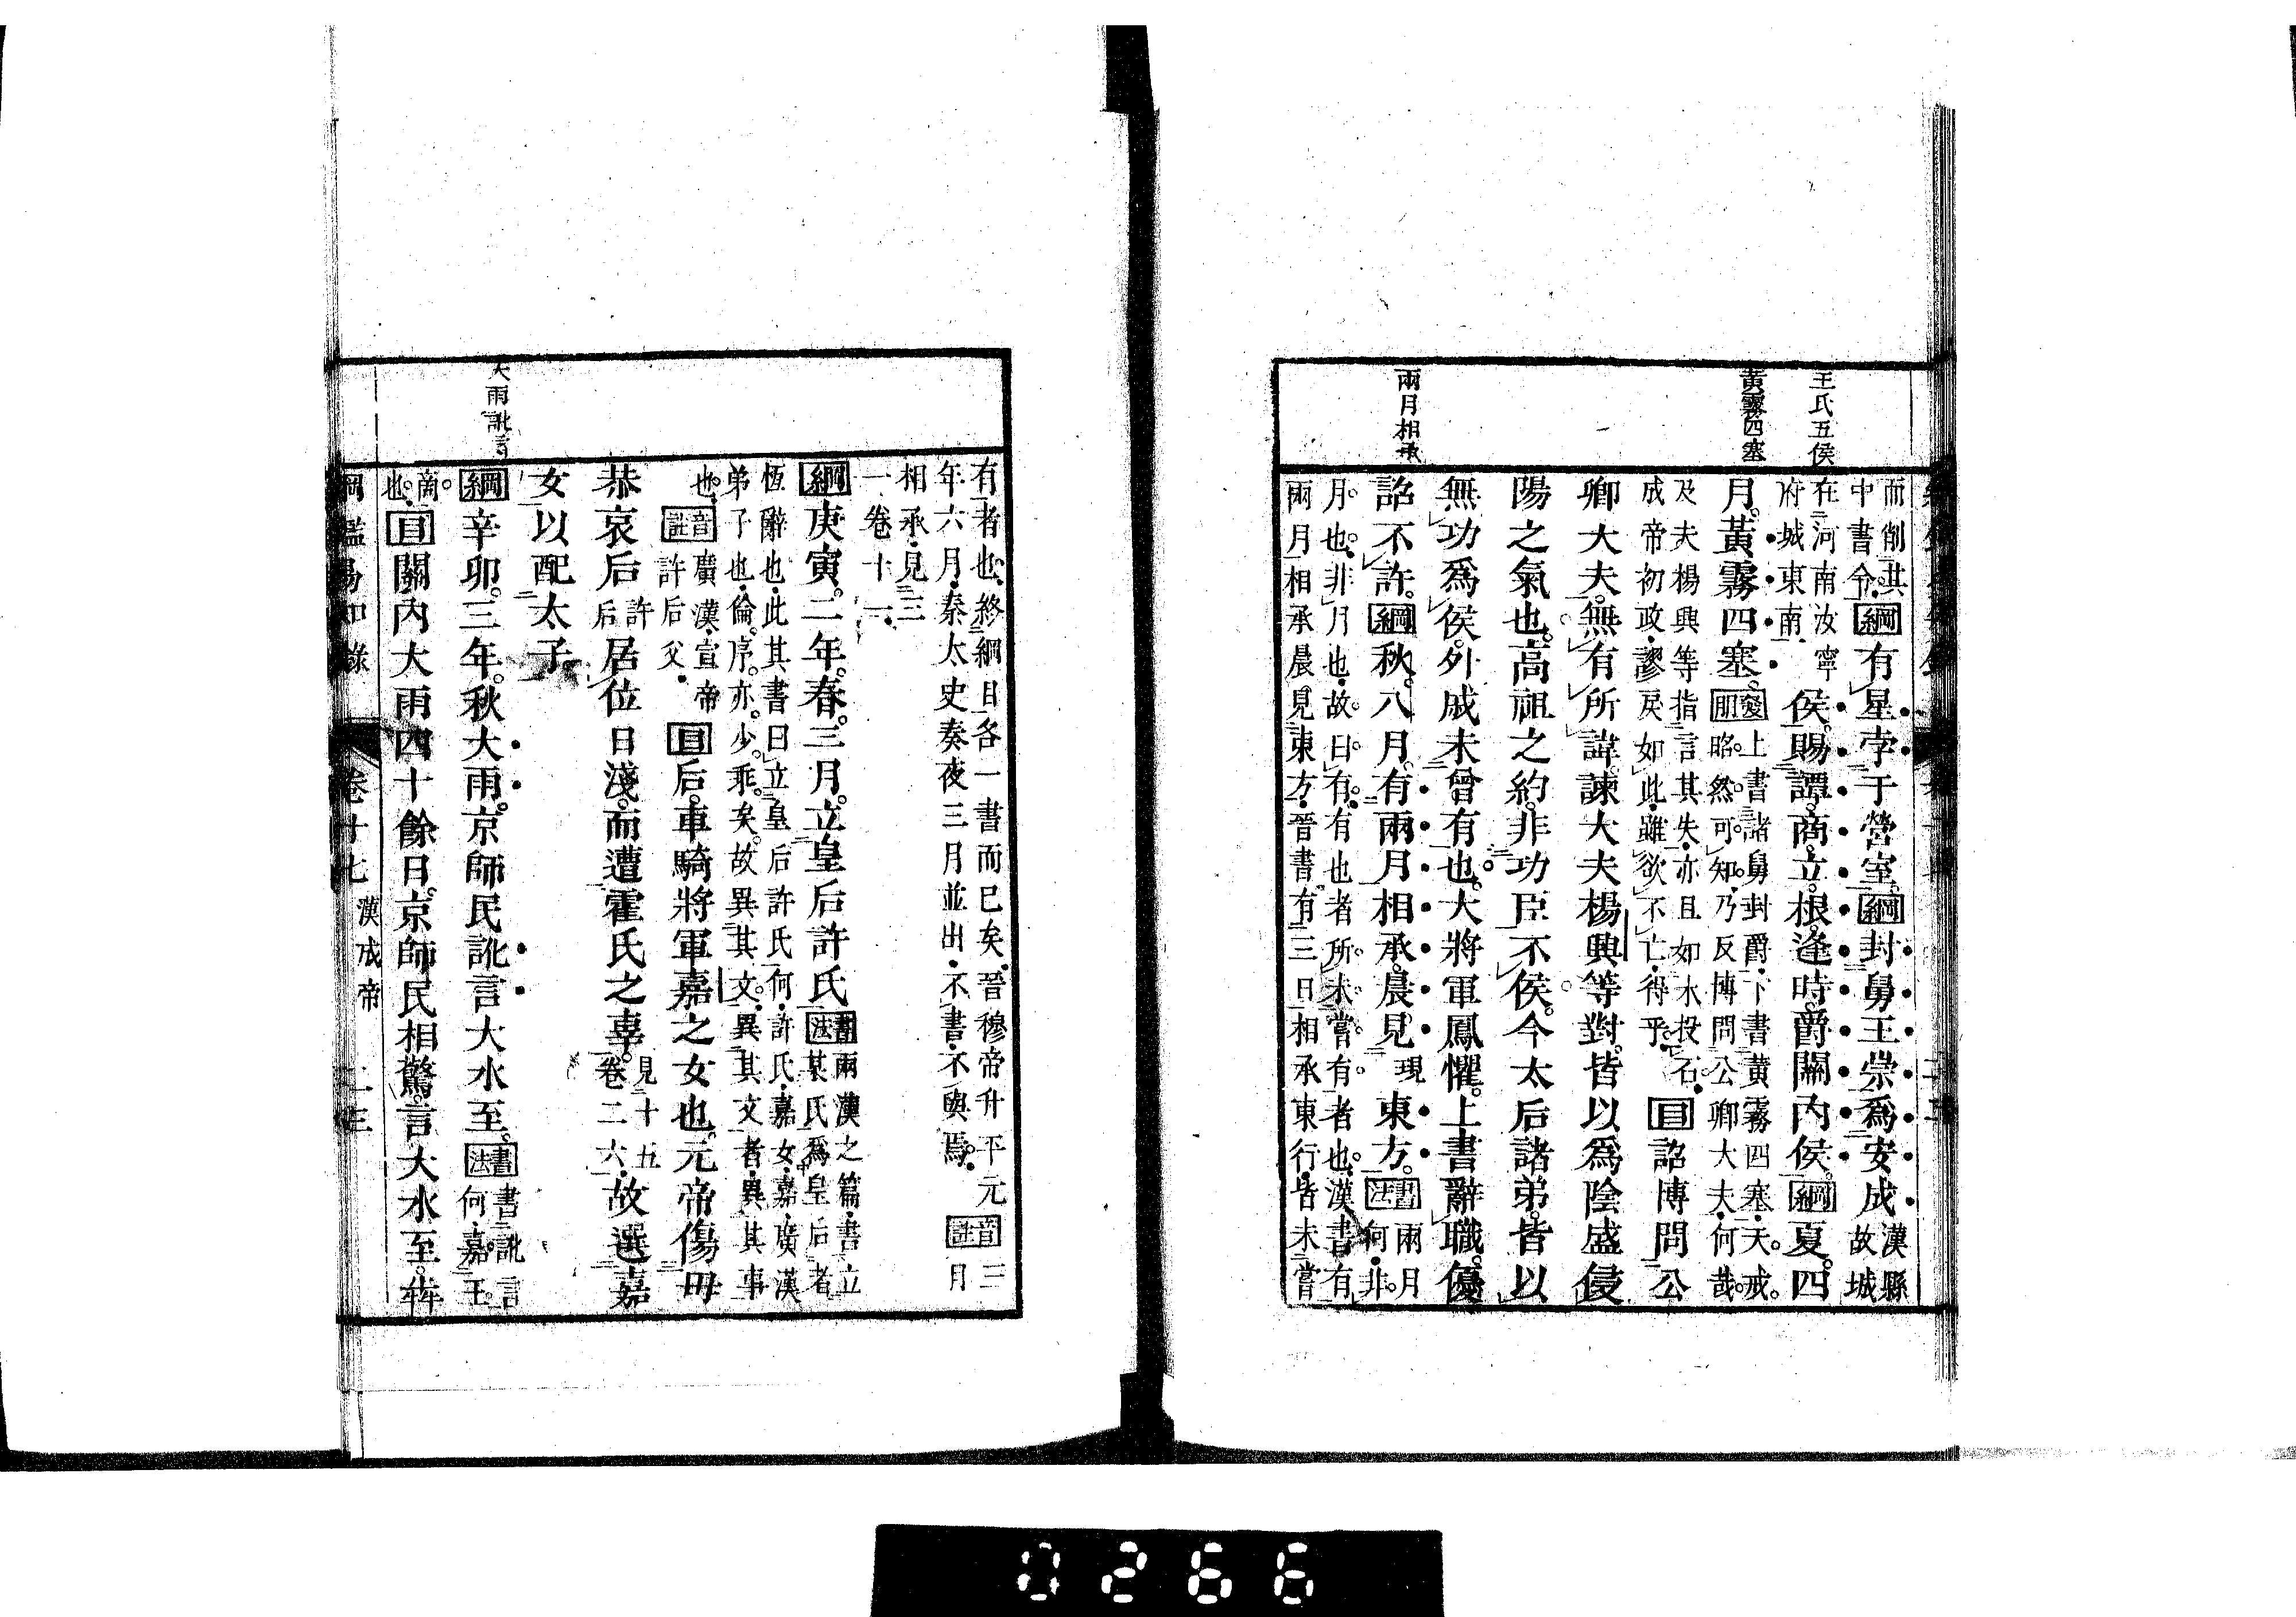 王氏五侯
黃霧四塞
兩月相承
而削其
中書令。綱有星孛于營室。綱封舅王崇爲安成漢縣故城
在河南汝寧
府城東南。侯。賜譚商立根逢時爵關內侯。綱夏四
月。黃霧四塞。發明上書諸舅封爵。下書黃霧四塞。天戒
昭然可知。乃反博問公卿大夫。何哉。
及夫楊興等指言其失。亦且如水投石。
成帝初政。謬戾如此。雖欲不亡。得乎。目詔博問公
卿大夫。無有所諱。諫大夫楊興等對。皆以爲陰盛侵
陽之氣也。高祖之約。非功臣不侯。今太后諸弟。皆以
無功爲侯。外戚未曾有也。大將軍鳳懼。上書辭職。優
詔不許。綱秋。八月。有兩月相承。晨見現東方。書法兩月
何。非
月也。非月也。故曰有。有也者。所未嘗有者也。漢書有
兩月相承晨見東方。晉書有三日相承東行。皆未嘗
大雨訛言
有者也。終綱目各一書而已矣。晉穆帝升平元
年六月。秦太史奏夜三月並出。不書。不與焉。音註三月
相承。見三
一卷十一。
綱庚寅。二年。春。三月。立皇后許氏書法兩漢之篇。書立
某氏爲皇后者
恆辭也。此其書曰立皇后許氏何。許氏。嘉女。嘉。廣漢
弟子也。倫序亦少乖矣。故異其文。異其文者。異其事
也。音註廣漢。宣帝
許后父。目后。車騎將軍嘉之女也。元帝傷母
恭哀后許后居位日淺。而遭霍氏之辜。見十五
卷二六。故選嘉
女以配太子
綱辛卯。三年。秋大雨。京師民訛言大水至。書法書訛言
何。嘉王
商
也。目關內大雨四十餘日。京師民相驚。言大水至。
綱鑑易知錄 卷十七 漢成帝 二三
0266